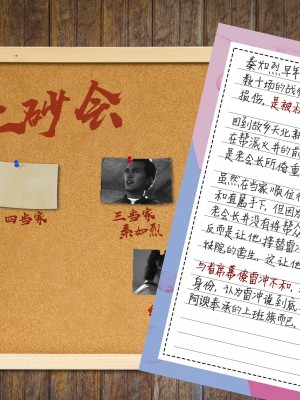 砂会
四当家
三当家
秦如烈
秦如烈早年
数十场的战
损伤,是被
回到故乡天北
在帮派火并的前
是老会长所倚重
虽然在当家顺位
和直属手下,但因
老会长并没有将帮众
反而是让他掌替雷
院的营生,这让他
与首席幕僚雷冲不和,
身份,认为雷冲说到底
阿谀奉承的上班族而已